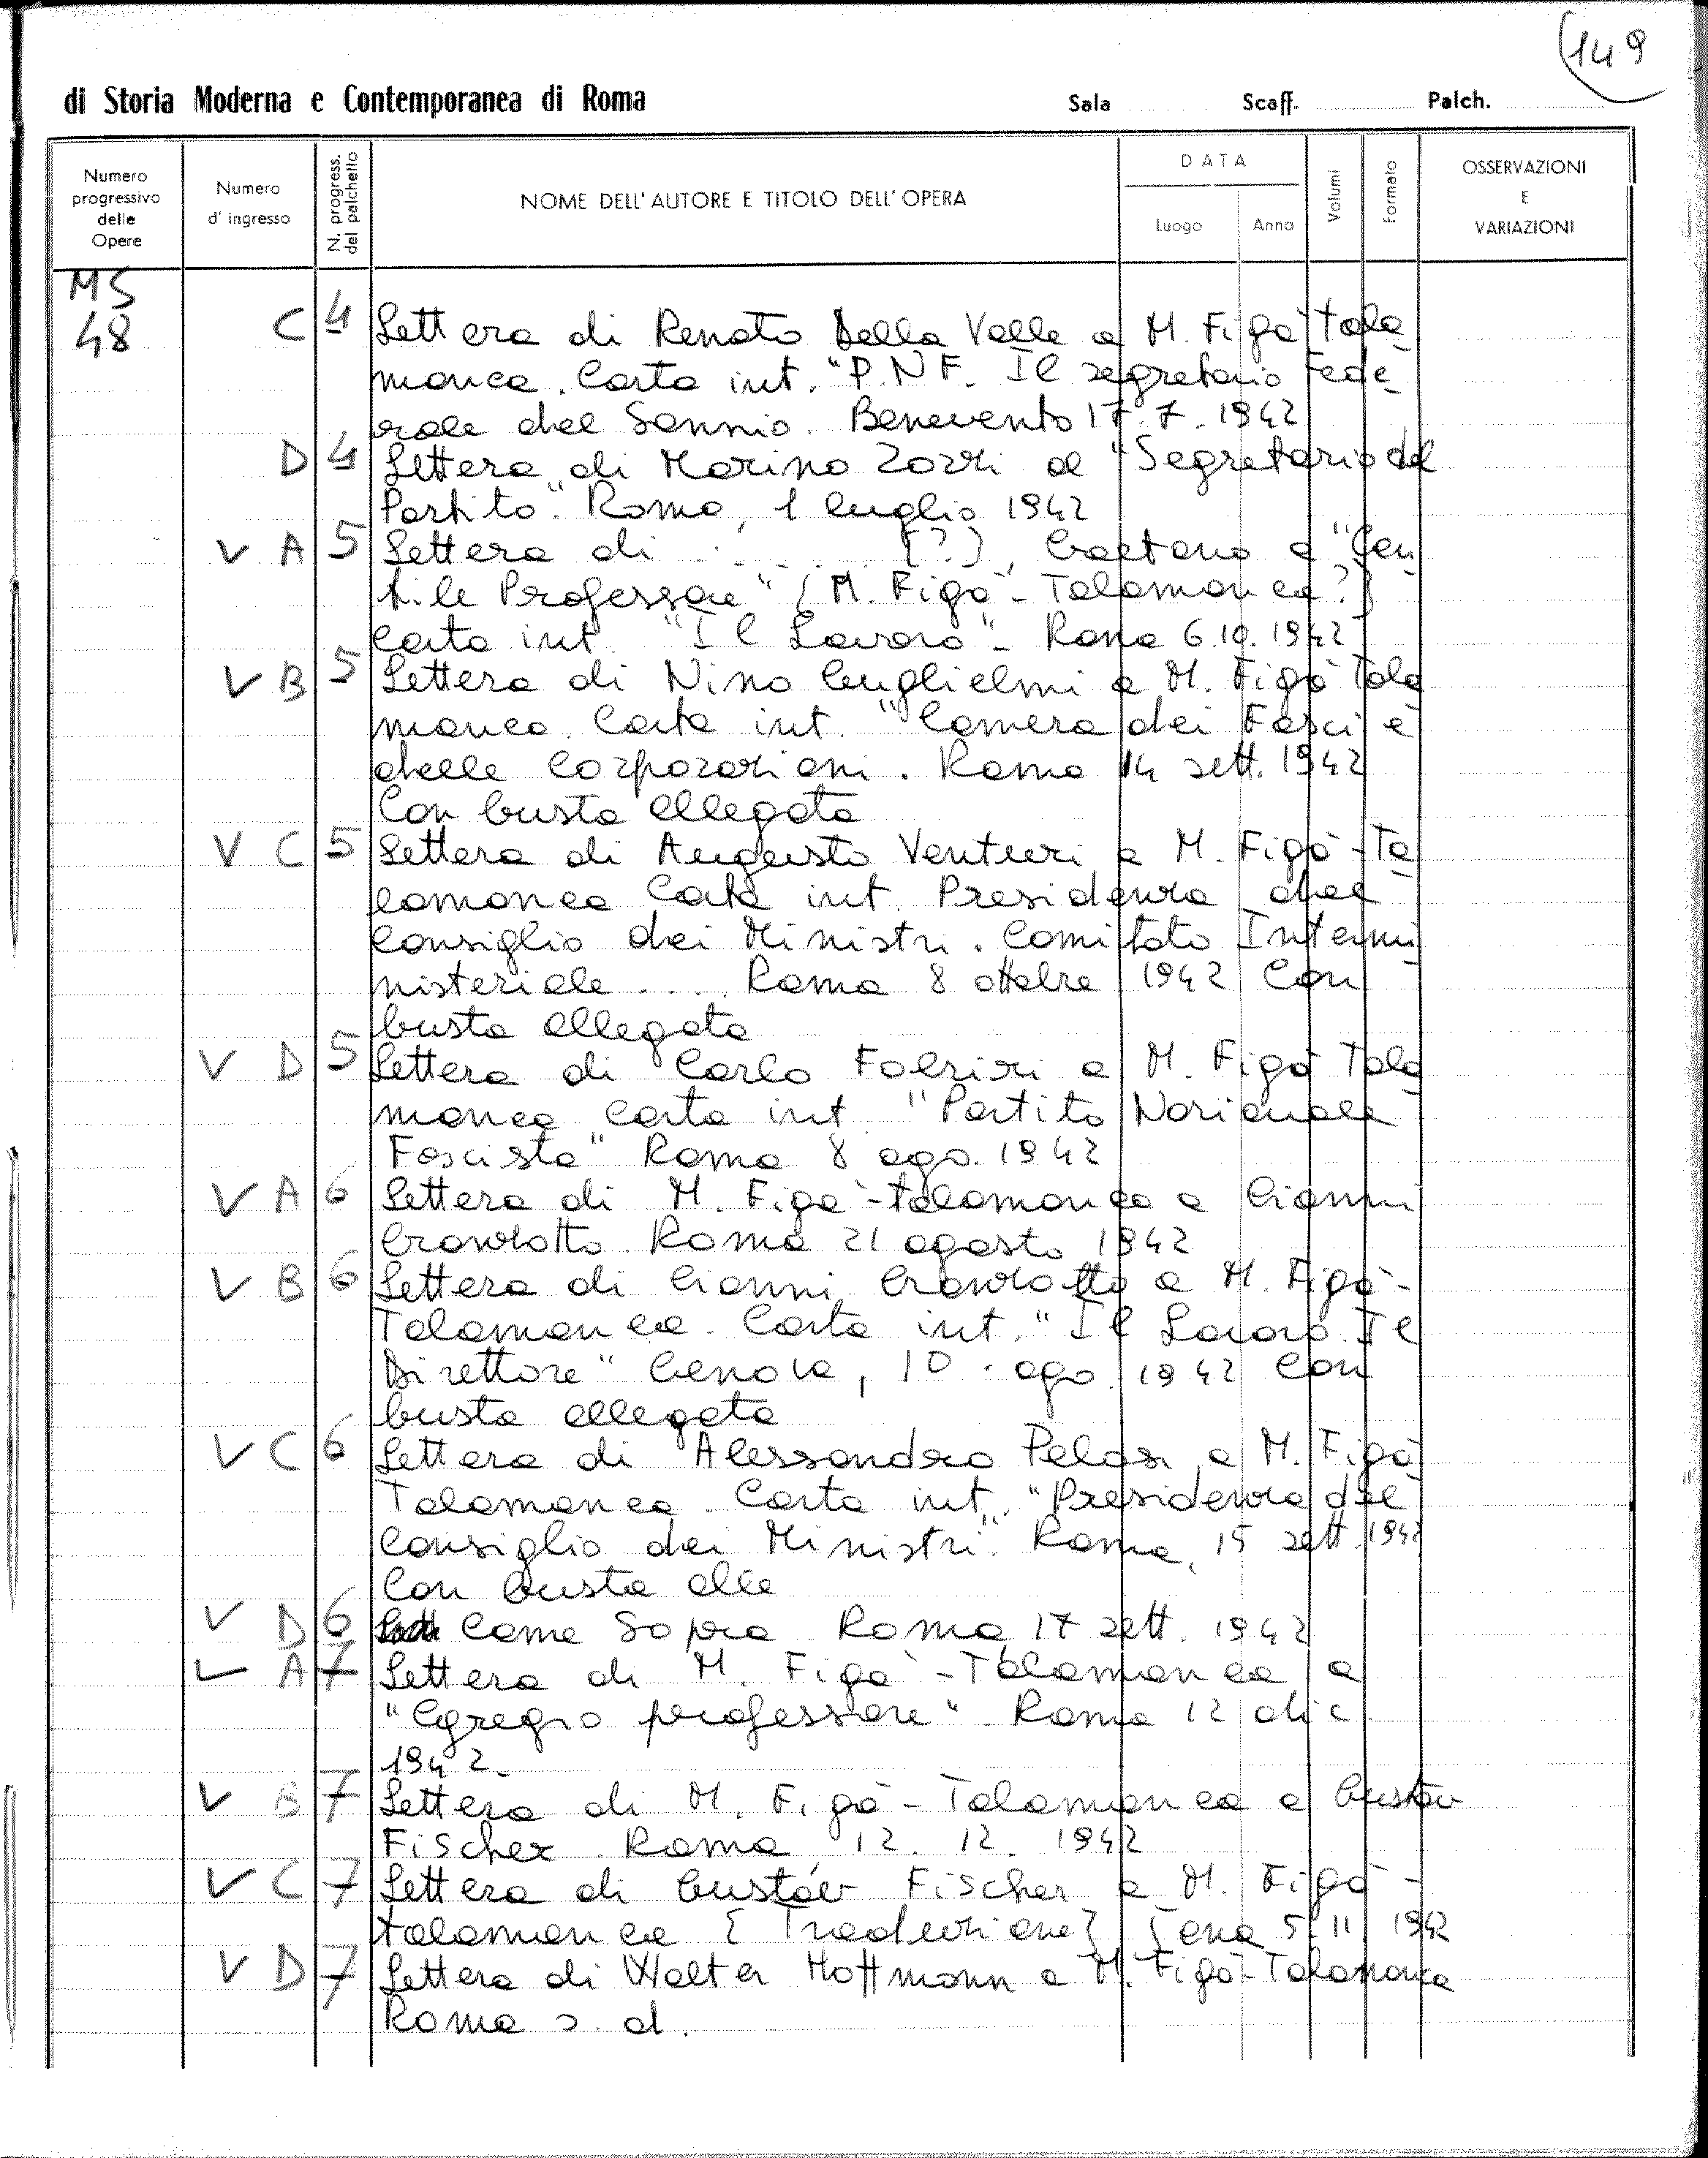 (149
di Storia Moderna e Contemporanea di Roma Sala Scaff. Palch.
Numero progressivo delle Opere
Numero d'ingresso
N. progress. del palchetto
NOME DELL'AUTORE E TITOLO DELL'OPERA
DATA
Luogo Anno
Volumi
Formato
OSSERVAZIONI E VARIAZIONI
MS
48 C 4 Lettera di Renato Della Valle a M. Figà Tala
monca. Carta int. "P.N.F. Il segretario Fede
rale del Sannio. Benevento 17.7.1942
D 4 Lettera di Marino Zorzi al "Segretario del
Partito". Roma, 1 luglio 1942
V A 5 Lettera di ..... [?], Gaetano a "Gen
tile Professore" [M. Figà-Talamonca?]
Carta int. "Il Lavoro" - Roma 6.10.1942
V B 5 Lettera di Nino Guglielmi a M. Figà Tala
monca. Carta int. "Camera dei Fasci e
delle Corporazioni. Roma 14 sett. 1942
Con busta allegata
V C 5 Lettera di Augusto Venturi a M. Figà-Ta
lamonca Carta int. Presidenza del
Consiglio dei Ministri. Comitato Intermi
nisteriale .... Roma 8 ottobre 1942 Con
busta allegata
V D 5 Lettera di Carlo Fabrizi a M. Figà Tala
monca Carta int "Partito Nazionale
Fascista" Roma 8 ago. 1942
V A 6 Lettera di M. Figà-Talamonca a Gianni
Granzotto. Roma 21 agosto 1942
V B 6 Lettera di Gianni Granzotto a M. Figà-
Talamonca. Carta int. "Il Lavoro. Il
Direttore" Genova, 10 . ago. 1942 Con
busta allegata
V C 6 Lettera di Alessandro Pelosi a M. Figà
Talamonca. Carta int. "Presidenza del
Consiglio dei Ministri". Roma, 15 sett. 1942
Con busta alle
V D 6 Come Sopra Roma 17 sett. 1942
V A 7 Lettera di M. Figà-Talamonca a
"Egregio professore" Roma 12 dic
1942.
V B 7 Lettera di M. Figà-Talamonca a Gustav
Fischer Roma 12.12.1942
V C 7 Lettera di Gustav Fischer a M. Figà-
Talamonca [Traduzione] Jena 5.11.1942
V D 7 Lettera di Walter Hoffmann a M. Figà-Talamonca
Roma s.d.